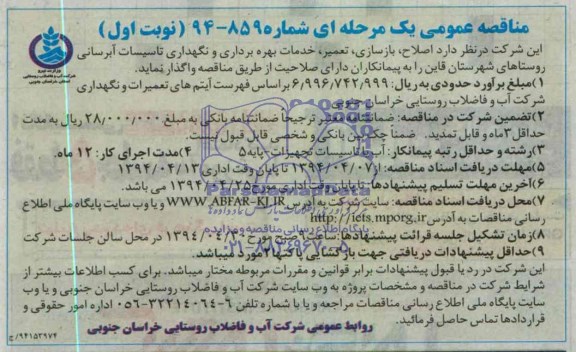 مناقصه عمومی یک مرحله ای شماره ۸۵۹-۹۴ (نوبت اول)
این شرکت در نظر دارد اصلاح، بازسازی، تعمیر، خدمات بهره برداری و نگهداری تاسیسات آبرسانی
روستاهای شهرستان قاین را به پیمانکاران دارای صلاحیت از طریق مناقصه واگذار نماید.
۱)مبلغ برآورد حدودی به ریال: ۶/۹۹۶/۷۴۲/۹۹۹ براساس فهرست آیتم های تعمیرات و نگهداری
شرکت آب و فاضلاب روستایی خراسان جنوبی
۲)تضمین شرکت در مناقصه: ضمانتنامه معتبر ترجیحاً ضمانتنامه بانکی به مبلغ ۲۸/۰۰۰/۰۰۰ ریال به مدت
حداقل ۳ماه و قابل تمدید. ضمناً چک بین بانکی و شخصی قابل قبول نیست.
۳)رشته و حداقل رتبه پیمانکار: آب یا تاسیسات تجهیزات-پایه۵ ۴)مدت اجرای کار: ۱۲ ماه.
۵)مهلت دریافت اسناد مناقصه: از ۱۳۹۴/۰۴/۰۷ تا پایان وقت اداری ۱۳۹۴/۰۴/۱۳
۶)آخرین مهلت تسلیم پیشنهادها: تا پایان وقت اداری مورخ ۱۳۹۴/۰۴/۲۵ می باشد.
۷)محل دریافت اسناد مناقصه: سایت شرکت به آدرس WWW.ABFAR-KJ.IR و یا وب سایت پایگاه ملی اطلاع
رسانی مناقصات به آدرس http://iets.mporg.ir
۸)زمان تشکیل جلسه قرائت پیشنهادها: ساعت مورخ در محل سالن جلسات شرکت
۹)حداقل پیشنهادات دریافتی جهت بازگشایی پاکتها ۲ مورد میباشد.
این شرکت در رد یا قبول پیشنهادات برابر قوانین و مقررات مربوطه مختار میباشد. برای کسب اطلاعات بیشتر از
شرایط شرکت در مناقصه و مشخصات پروژه به وب سایت شرکت آب و فاضلاب روستایی خراسان جنوبی و یا وب
سایت پایگاه ملی اطلاع رسانی مناقصات مراجعه و یا با شماره تلفن ۶-۳۲۲۱۴۰۶۴-۰۵۶ اداره امور حقوقی و
قراردادها تماس حاصل فرمائید.
روابط عمومی شرکت آب و فاضلاب روستایی خراسان جنوبی
۹۴۱۵۳۹۷۴/ج
وزارت نیرو
شرکت آب و فاضلاب روستایی
استان خراسان جنوبی
پایگاه اطلاع رسانی مناقصه و مزایده